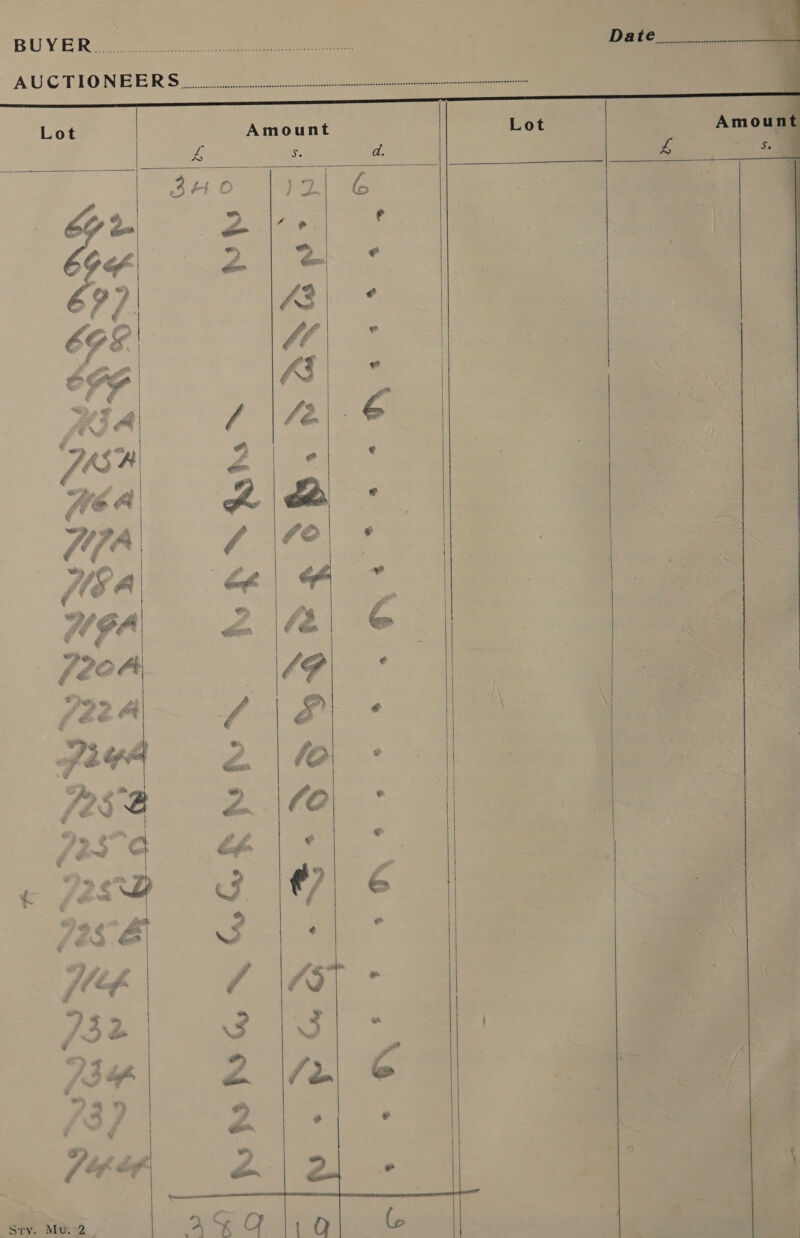 BUYER
Date
AUCTIONEERS
Lot Amount Lot Amount
£ s. d. £ s.
340 12 6
692 2 · ·
694 2 2 ·
697 13 ·
698 11 ·
699 13 ·
713A 1 12 6
715A 2 · ·
716A 2 2 ·
717A 1 10 ·
718A 4 4 ·
719A 2 12 6
720A 19 ·
722A 1 8 ·
724A 2 10 ·
725B 2 10 ·
725C 4 · ·
x 725D 3 7 6
725E 3 · ·
714 1 15 ·
732 3 3 ·
734 2 12 6
737 2 · ·
744 2 2 ·
389 19 6
Sry. Mu. 2